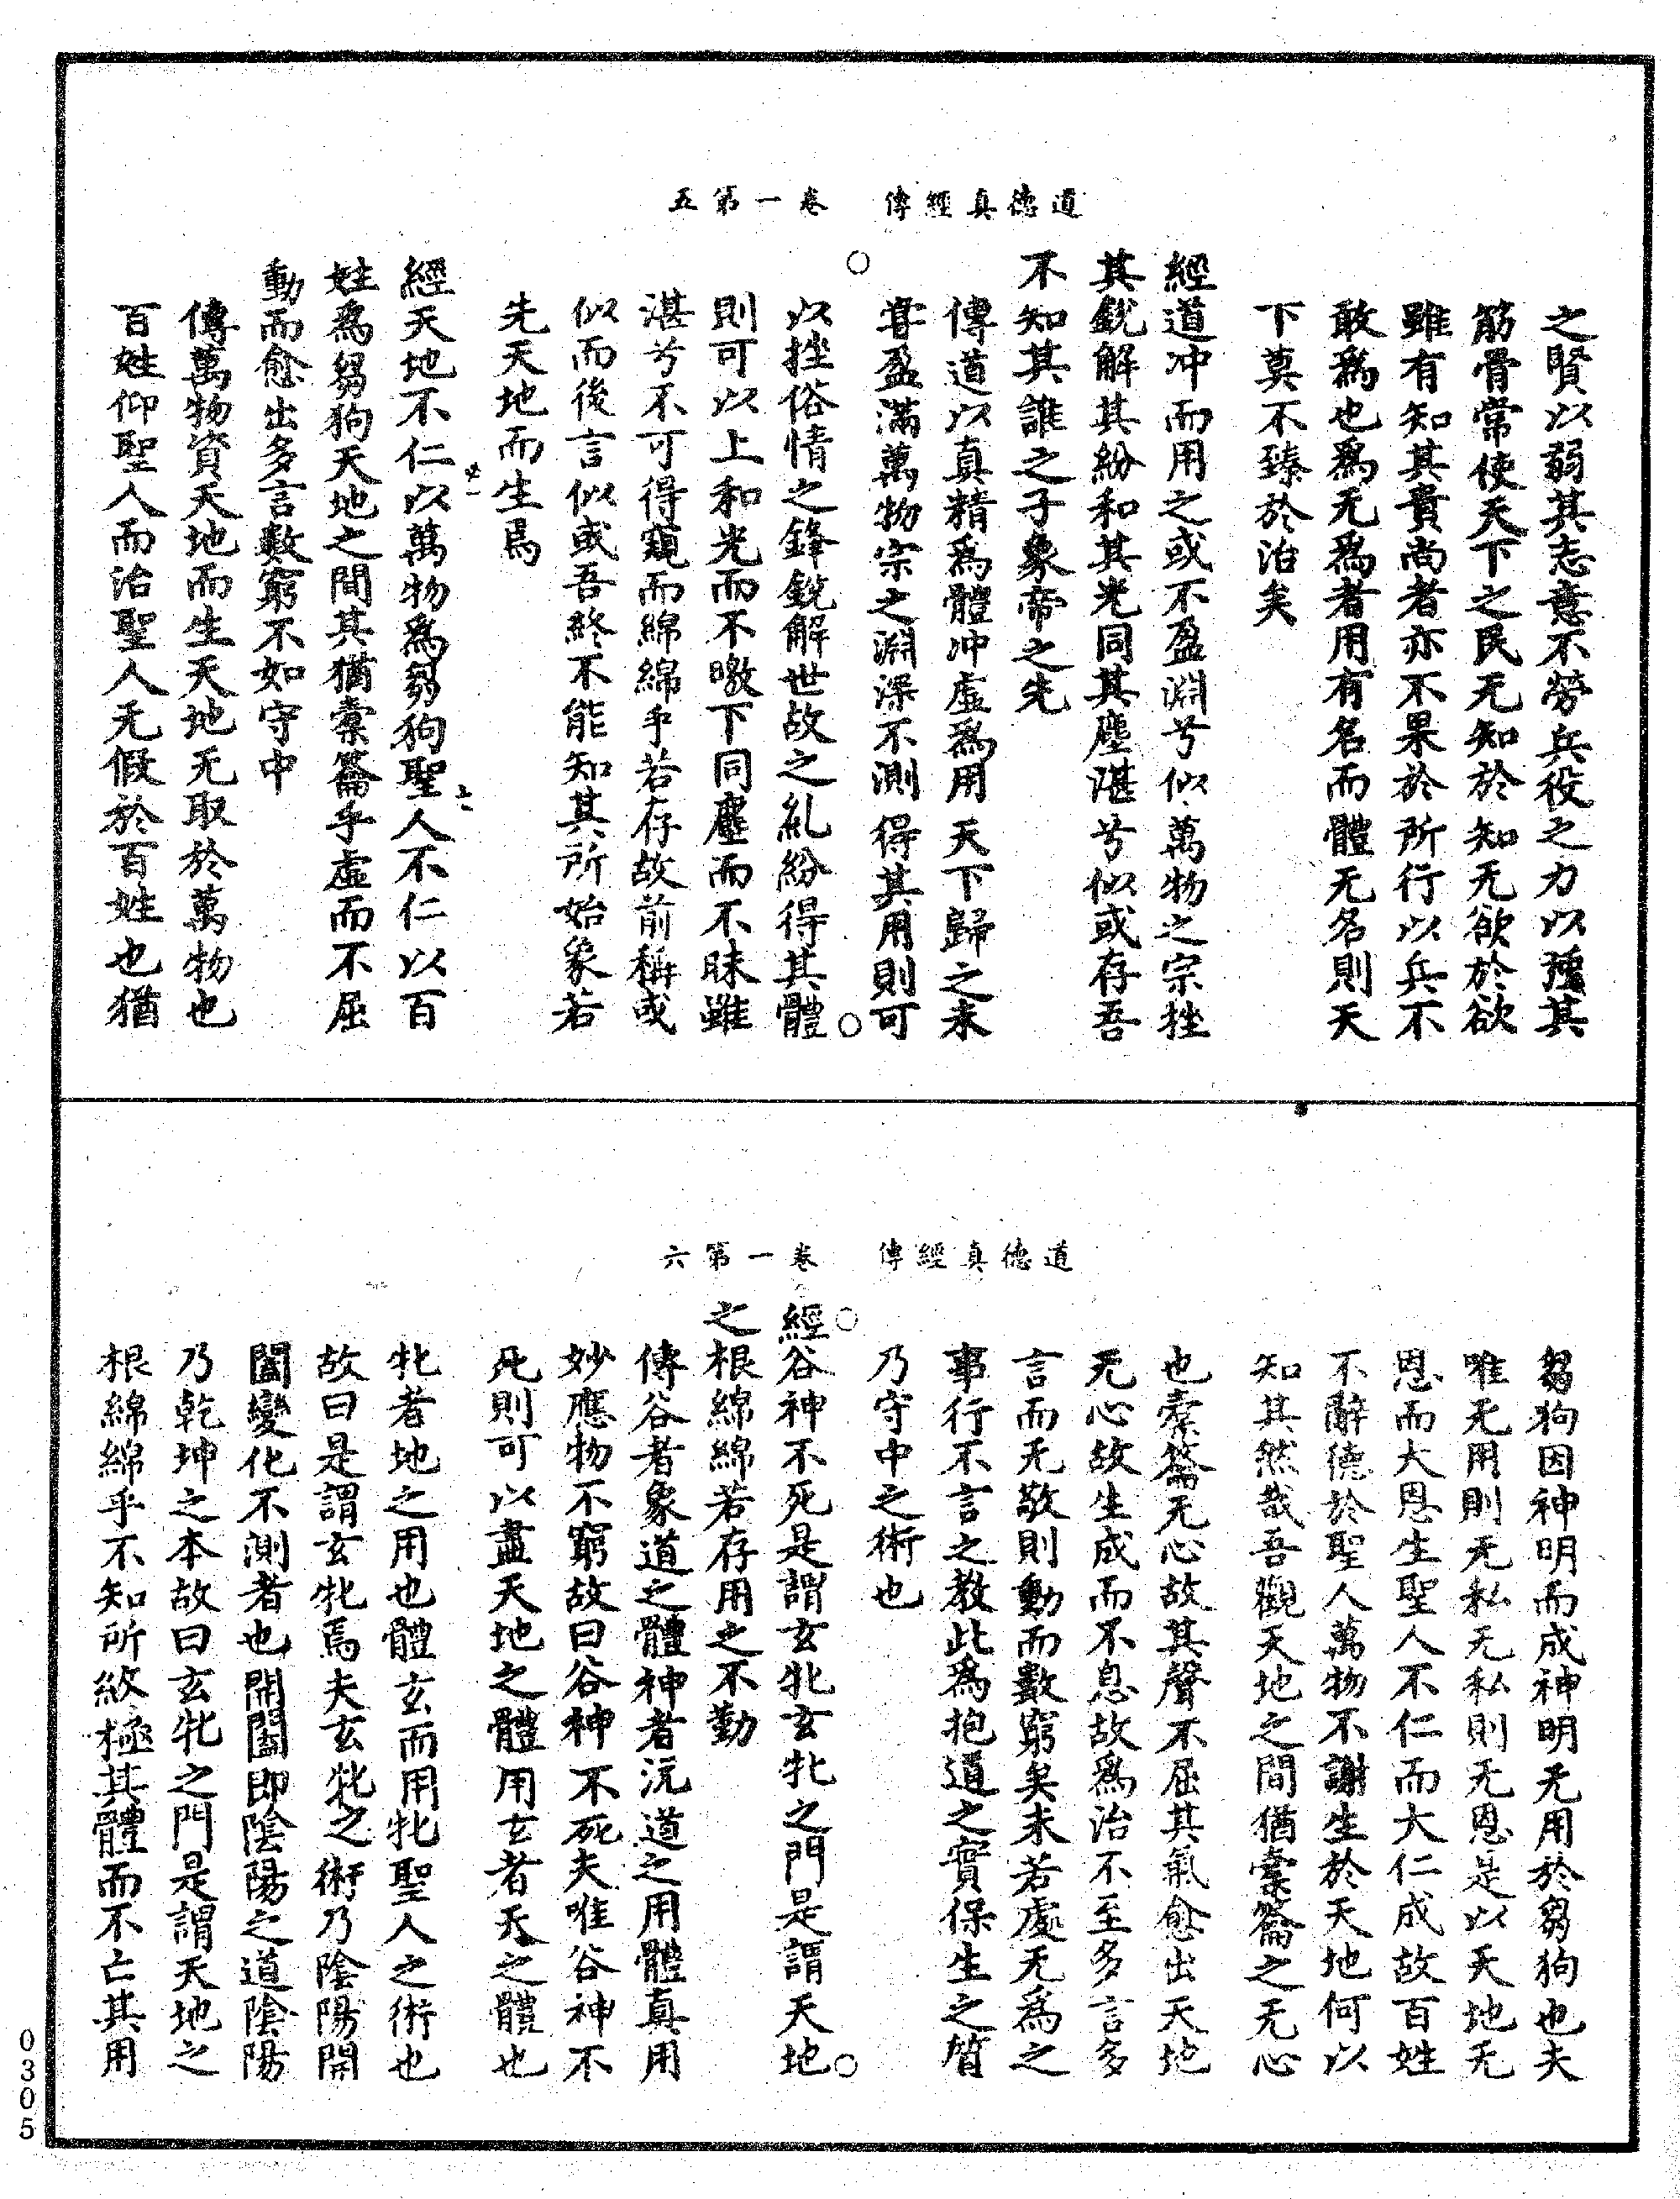 道德真經傳　卷一第五
之賢以弱其志意不勞兵役之力以強其
筋骨常使天下之民无知於知无欲於欲
雖有知其貴尚者亦不果於所行以兵不
敢爲也爲无爲者用有名而體无名則天
下莫不臻於治矣
經道冲而用之或不盈淵兮似萬物之宗挫
其銳解其紛和其光同其塵湛兮似或存吾
不知其誰之子象帝之先
傳道以真精爲體冲虛爲用天下歸之未
甞盈滿萬物宗之淵深不測得其用則可
以挫俗情之鋒銳解世故之糺紛得其體
則可以上和光而不曒下同塵而不昧雖
湛兮不可得窺而綿綿乎若存故前稱或
似而後言似或吾終不能知其所始象若
先天地而生焉
經天地不仁以萬物爲芻狗聖人不仁以百
姓爲芻狗天地之間其猶槖籥乎虛而不屈
動而愈出多言數窮不如守中
傳萬物資天地而生天地无取於萬物也
百姓仰聖人而治聖人无假於百姓也猶
道德真經傳　卷一第六
芻狗因神明而成神明无用於芻狗也夫
唯无用則无私无私則无恩是以天地无
恩而大恩生聖人不仁而大仁成故百姓
不辭德於聖人萬物不謝生於天地何以
知其然哉吾觀天地之間猶槖籥之无心
也槖籥无心故其聲不屈其氣愈出天地
无心故生成而不息故爲治不至多言多
言而无敬則動而數窮矣未若處无爲之
事行不言之教此爲抱道之實保生之質
乃守中之術也
經谷神不死是謂玄牝玄牝之門是謂天地
之根綿綿若存用之不勤
傳谷者象道之體神者況道之用體真用
妙應物不窮故曰谷神不死夫唯谷神不
死則可以盡天地之體用玄者天之體也
牝者地之用也體玄而用牝聖人之術也
故曰是謂玄牝焉夫玄牝之術乃陰陽開
闔變化不測者也開闔即陰陽之道陰陽
乃乾坤之本故曰玄牝之門是謂天地之
根綿綿乎不知所終極其體而不亡其用
0305